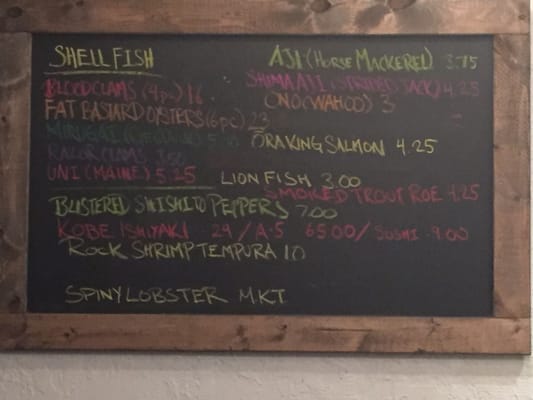 SHELLFISH
BLOOD CLAMS (4pc) 16
FAT BASTARD OYSTERS (6pc) 23
MIRUGAI
RAZOR CLAMS
UNI (MAINE) 5.25
AJI (HORSE MACKEREL) 3.75
SHIMA AJI (STRIPED JACK) 4.25
ONO (WAHOO) 3
ORA KING SALMON 4.25
LION FISH 3.00
SMOKED TROUT ROE 4.25
BLISTERED SHISHITO PEPPERS 7.00
KOBE ISHIYAKI 29/A-5 65.00/SUSHI 9.00
ROCK SHRIMP TEMPURA 10
SPINY LOBSTER M.K.T.